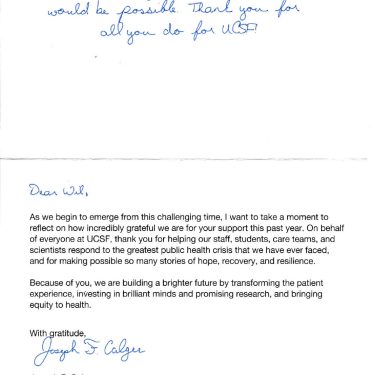 would be possible. Thank you for
all you do for UCSF!
Dear Wil,
As we begin to emerge from this challenging time, I want to take a moment to
reflect on how incredibly grateful we are for your support this past year. On behalf
of everyone at UCSF, thank you for helping our staff, students, care teams, and
scientists respond to the greatest public health crisis that we have ever faced,
and for making possible so many stories of hope, recovery, and resilience.
Because of you, we are building a brighter future by transforming the patient
experience, investing in brilliant minds and promising research, and bringing
equity to health.
With gratitude,
Joseph F. Calger